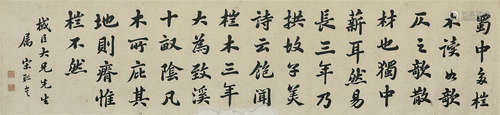 蜀中多桤
木读如欹
仄之欹散
材也独中
薪耳然易
長三年乃
拱故子美
诗云饱聞
桤木三年
大為致溪
十畝陰凡
木所庇其
地則瘠惟
桤不然
械臣大兄先生
属 宋